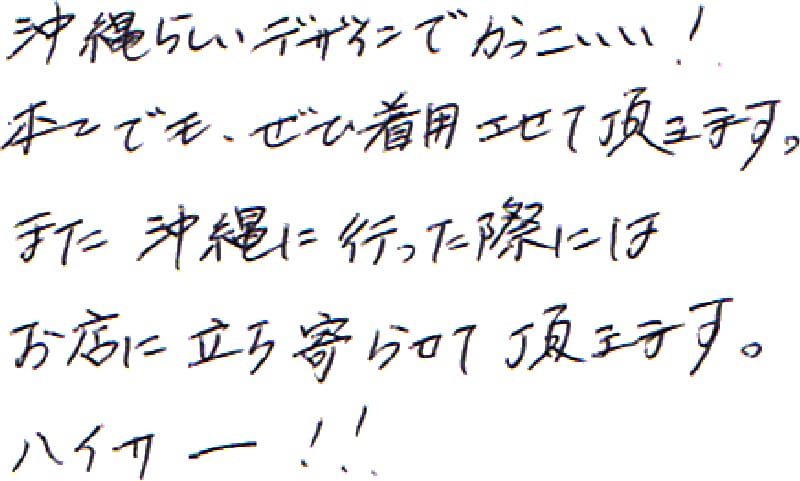 沖縄らしいデザインでかっこいい！
本土でも、ぜひ着用させて頂きます。
また 沖縄に行った際には
お店に立ち寄らせて頂きます。
ハイサー！！